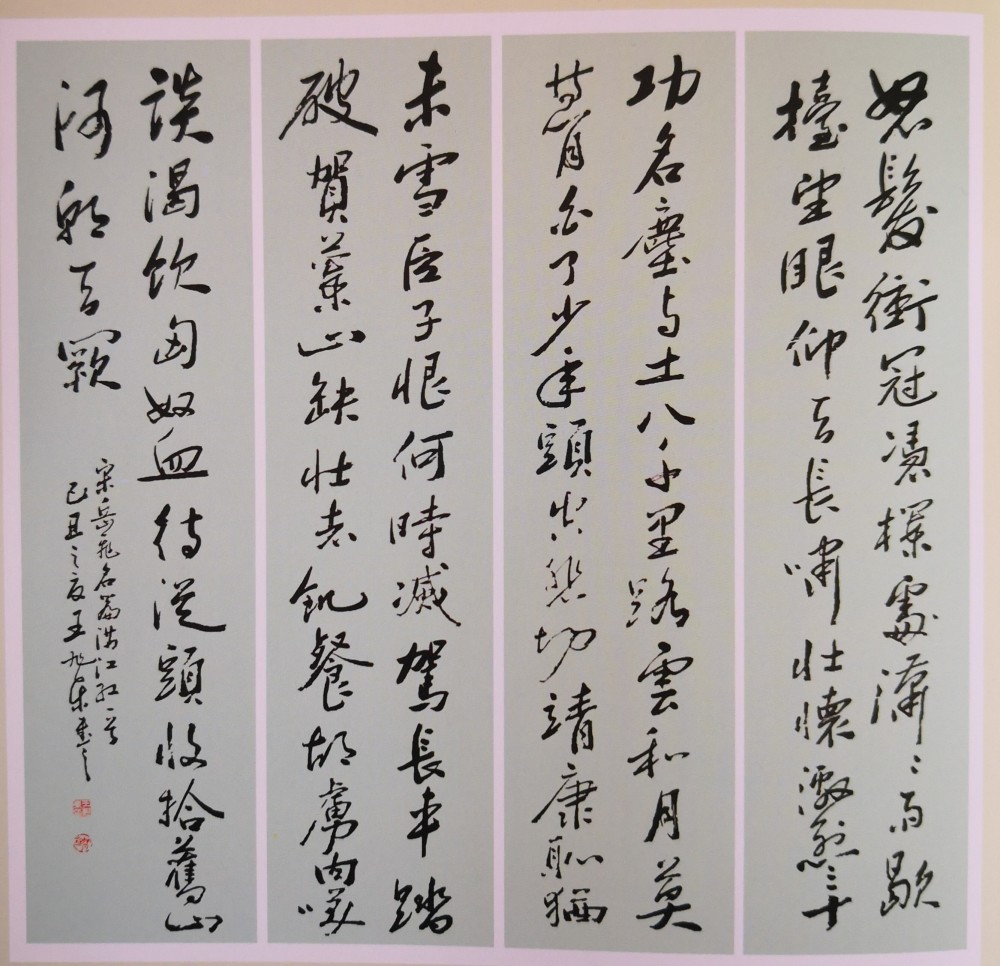 怒髮衝冠憑欄處瀟〻雨歇
擡望眼仰天長嘯壯懷激烈三十
功名塵与土八千里路雲和月莫
等閒白了少年頭空悲切靖康恥猶
未雪臣子恨何時滅駕長車踏
破賀蘭山缺壯志飢餐胡虜肉笑
談渴飲匈奴血待從頭收拾舊山
河朝天闕
宋岳飛名篇滿江紅一首
己丑之夏王旭東書之